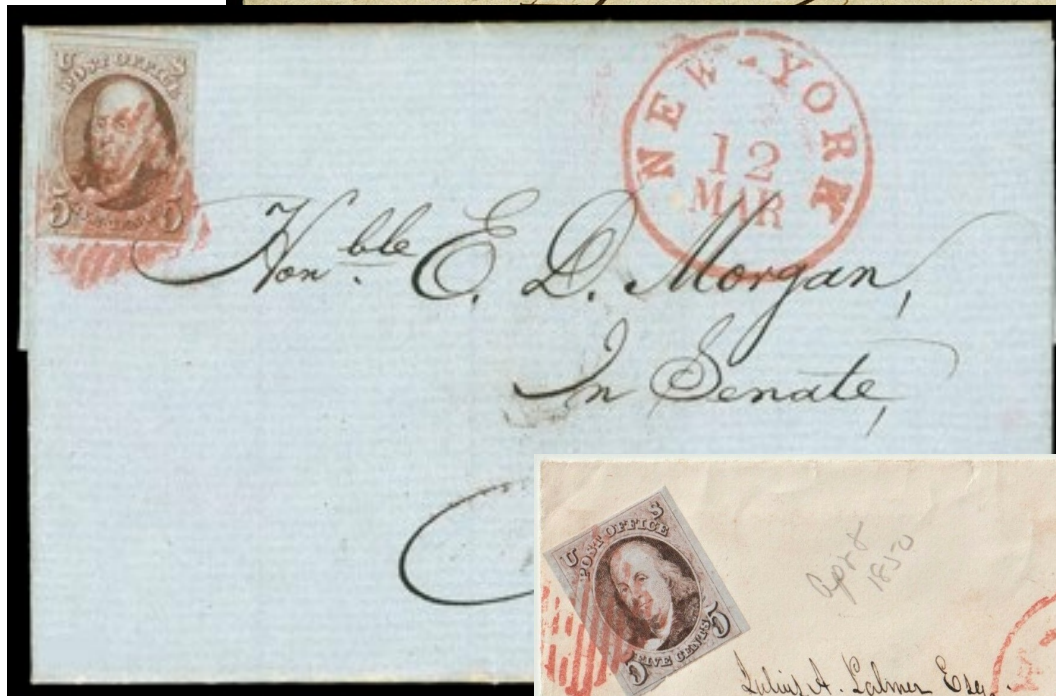 U S
POST OFFICE
5 5
NEW-YORK
12
MAR
Honble. E. D. Morgan,
In Senate,
U S
POST OFFICE
FIVE CENTS
5 5
Apr 8
1850
Julius A. Palmer Esq